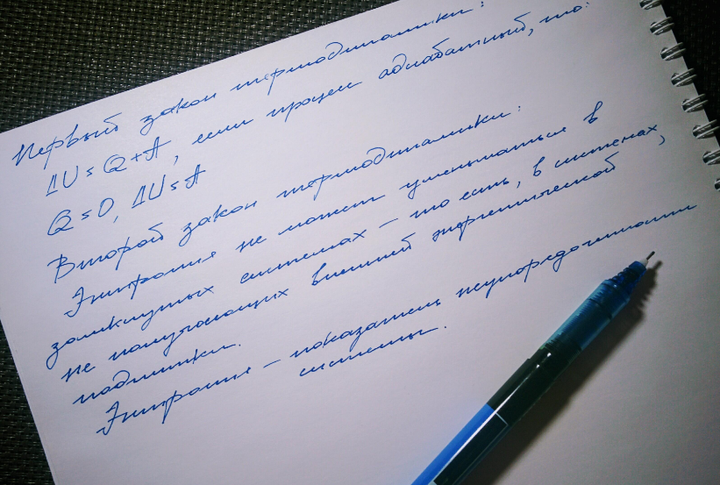 Первый закон термодинамики:
ΔU = Q + A, если процесс адиабатный, то:
Q = 0, ΔU = A
Второй закон термодинамики:
Энтропия не может уменьшаться в
замкнутых системах – то есть, в системах,
не получающих внешней энергетической
подпитки.
Энтропия – показатель неупорядоченности
системы.